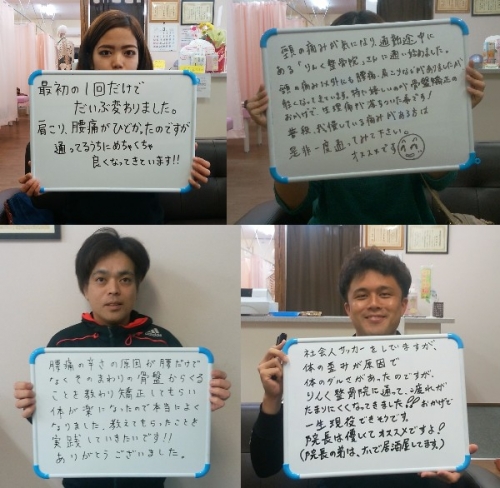 最初の1回だけで
だいぶ変わりました。
肩こり、腰痛がひどかったのですが
通ってるうちにめちゃくちゃ
良くなってきています!!
頭の痛みが気になり、通勤途中に
ある「りんく整骨院」さんに通い始めました。
頭の痛み以外にも腰痛、肩こりなどがありましたが
軽くなってきています。特に嬉しいのが骨盤矯正の
おかげで、生理痛が落ちついた事です!
普段、我慢している痛みがある方は
是非一度通ってみて下さい。
オススメです
腰痛の辛さの原因が腰だけで
なくそのまわりの骨盤からくる
ことを教わり矯正してもらい
体が楽になったので本当によく
なりました。教えてもらったことを
実践していきたいです!!
ありがとうございました。
社会人サッカーをしていますが、
体の歪みが原因で
体のダルさがあったのですが、
りんく整骨院に通って、疲れが
たまりにくくなってきました!!おかげで
一生現役でできそうです。
院長は優しくてオススメですよ!
(院長の弟は、大で居酒屋してます)